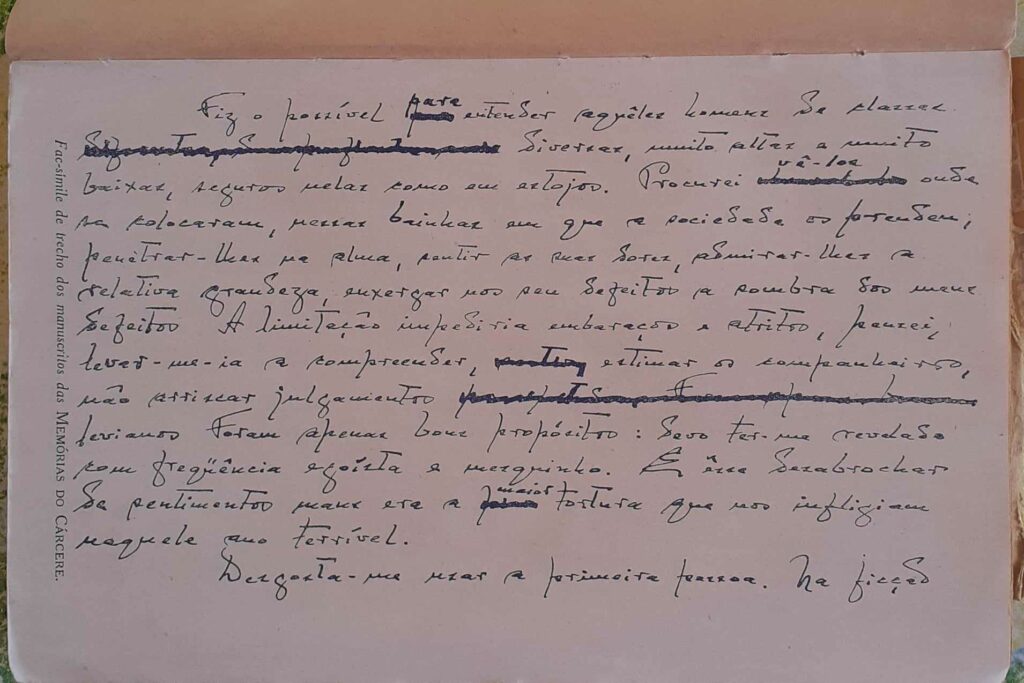 Fiz o possível para entender aquêles homens de classes
diversas, muito altas e muito
baixas, seguros nelas como em estojos. Procurei vê-los onde
se colocaram, nessas bainhas em que a sociedade os prendeu,
penetrar-lhes na alma, sentir as suas dores, admirar-lhes a
relativa grandeza, enxergar nos seus defeitos a sombra dos meus
defeitos A limitação impediria embaraços e atritos, pensei,
levar-me-ia a compreender, estimar os companheiros,
não arriscar julgamentos
levianos Foram apenas bons propósitos: devo ter-me revelado
com freqüência egoísta e mesquinho. E êsse desabrochar
de sentimentos maus era a maior tortura que nos infligiam
naquele ano terrível.
Desgosta-me usar a primeira pessoa. Na ficção
Fac-símile de trecho dos manuscritos das MEMÓRIAS DO CÁRCERE.